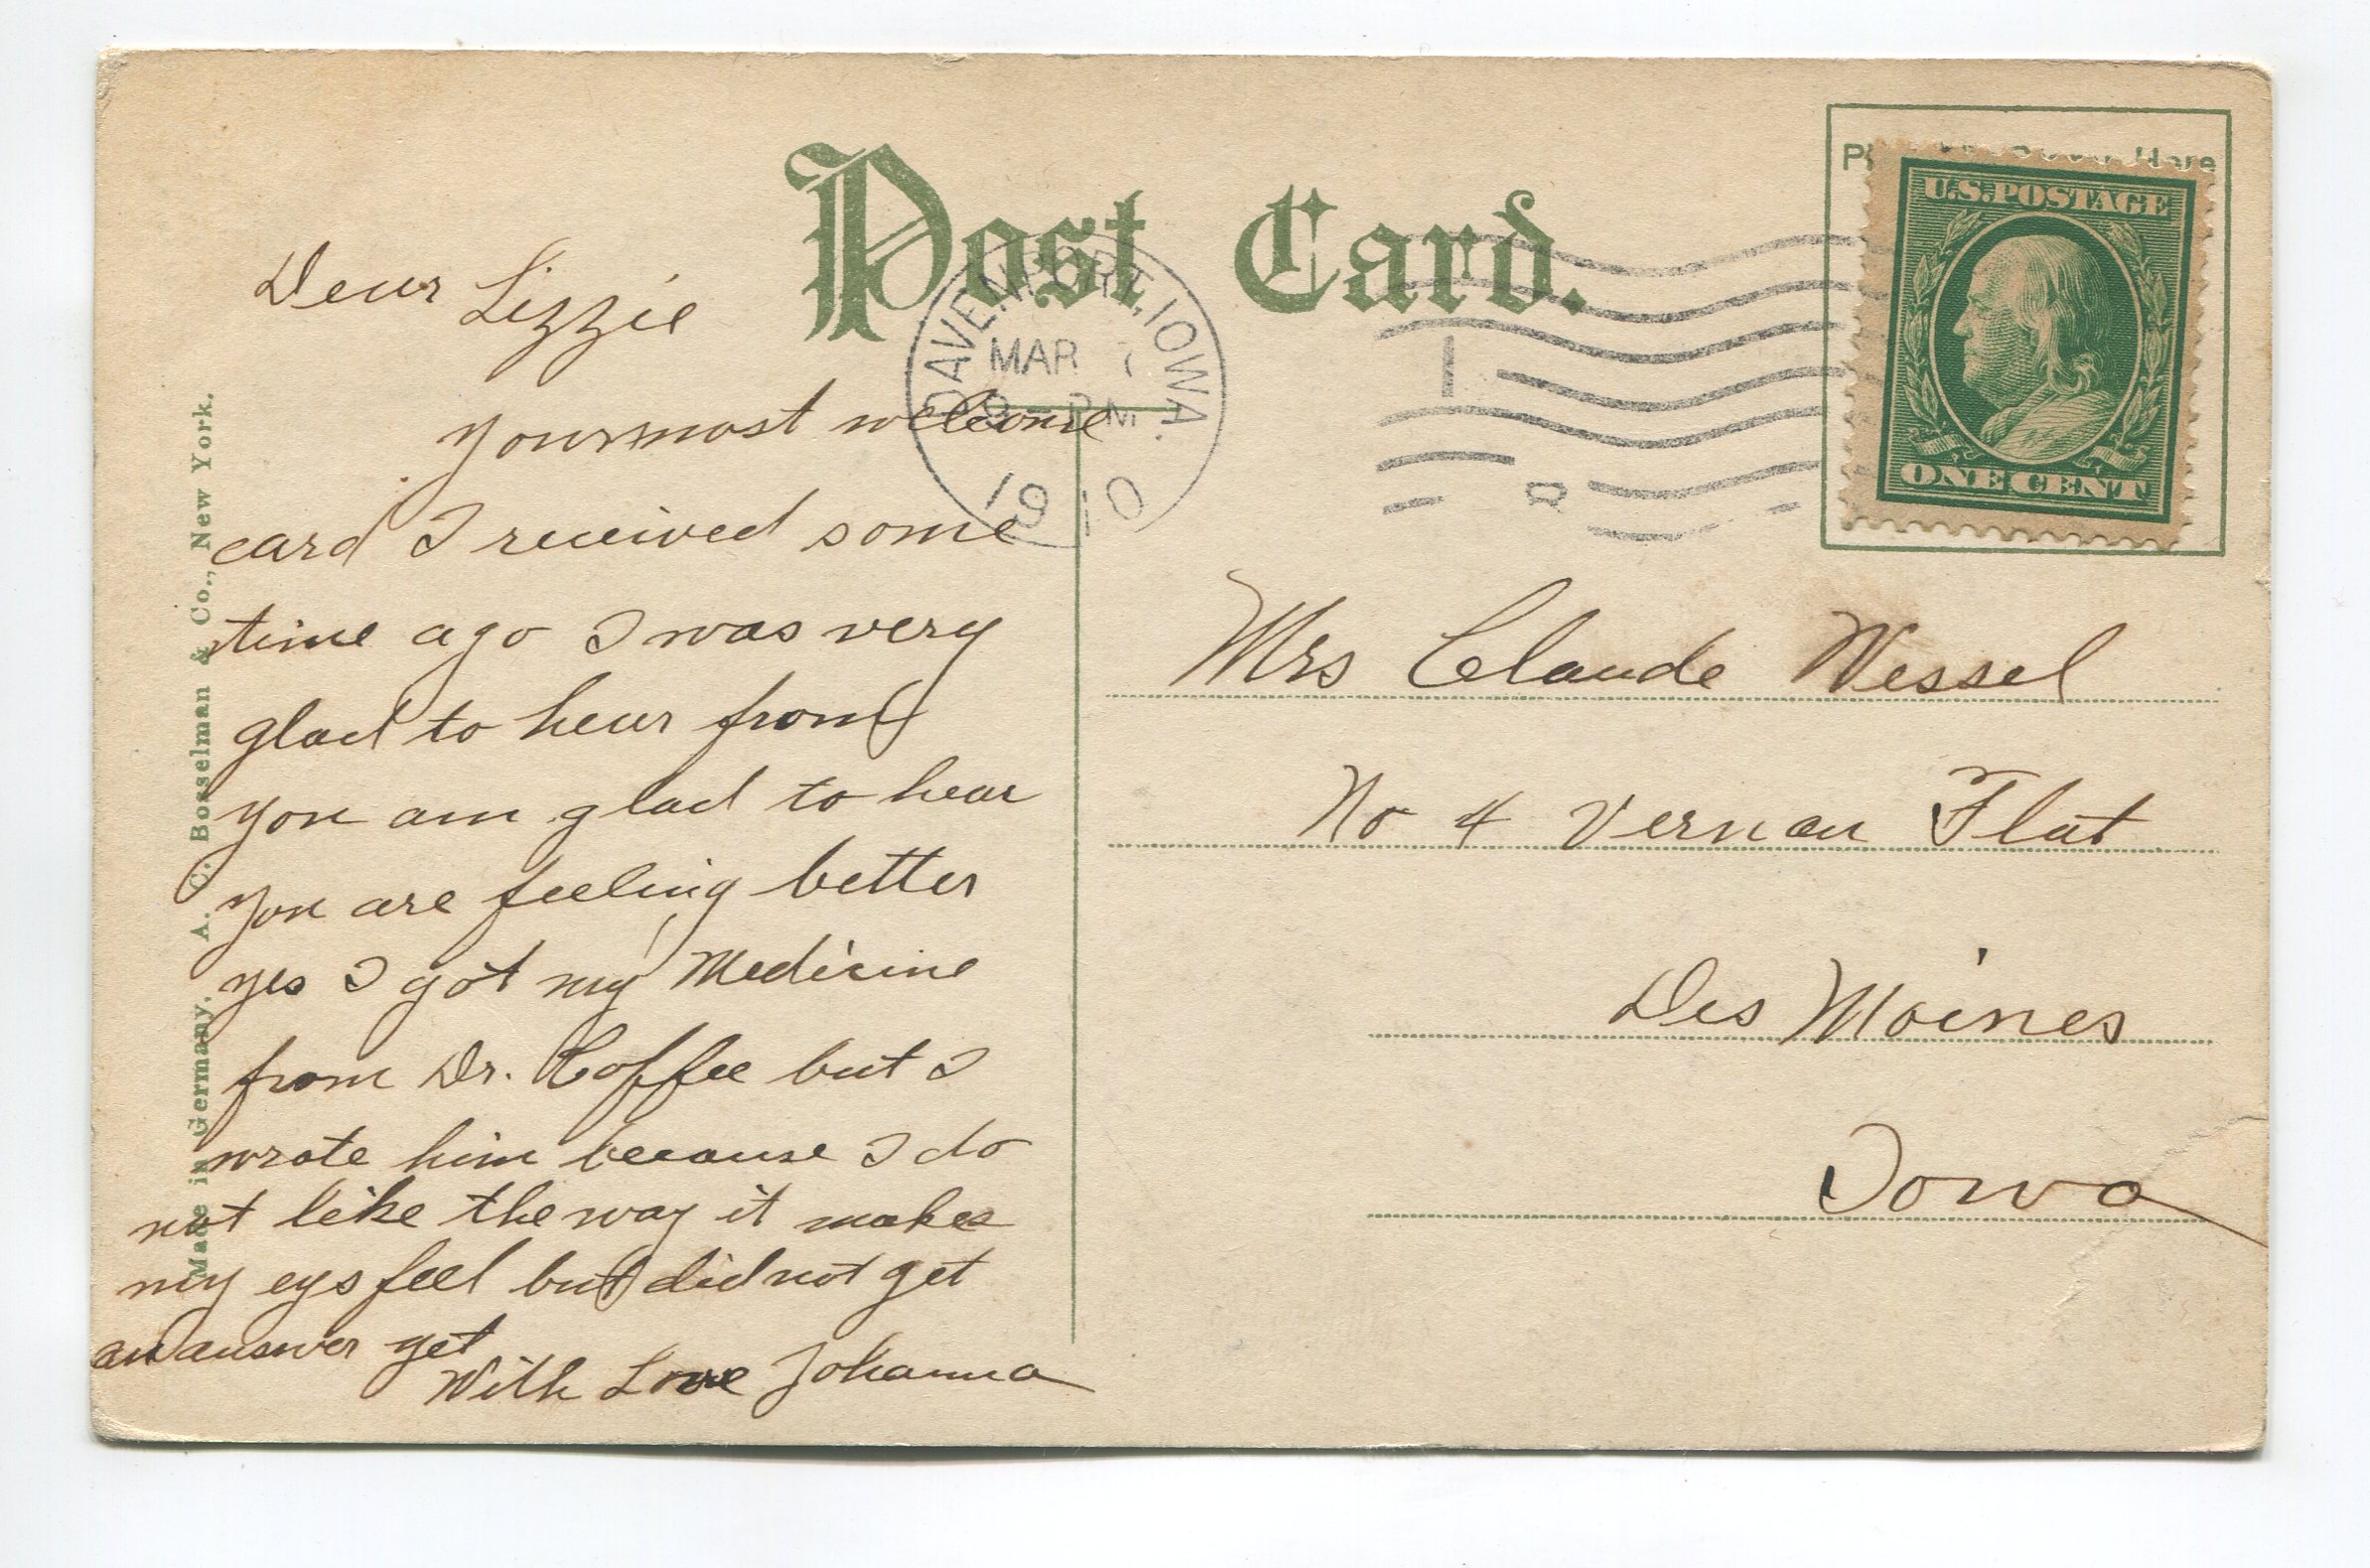 Post Card.
DAVENPORT, IOWA.
MAR
PM
1910
U.S. POSTAGE
ONE CENT
Here
Made in Germany. A. C. Bosselman & Co., New York.
Dear Lizzie
Your most welcome
card I received some
time ago I was very
glad to hear from
you am glad to hear
you are feeling better
yes I got my Medicine
from Dr. Coffee but I
wrote him because I do
not like the way it makes
my eys feel but did not get
an answer yet
With Love Johanna
Mrs Claude Wessel
No 4 Vernon Flat
Des Moines
Iowa